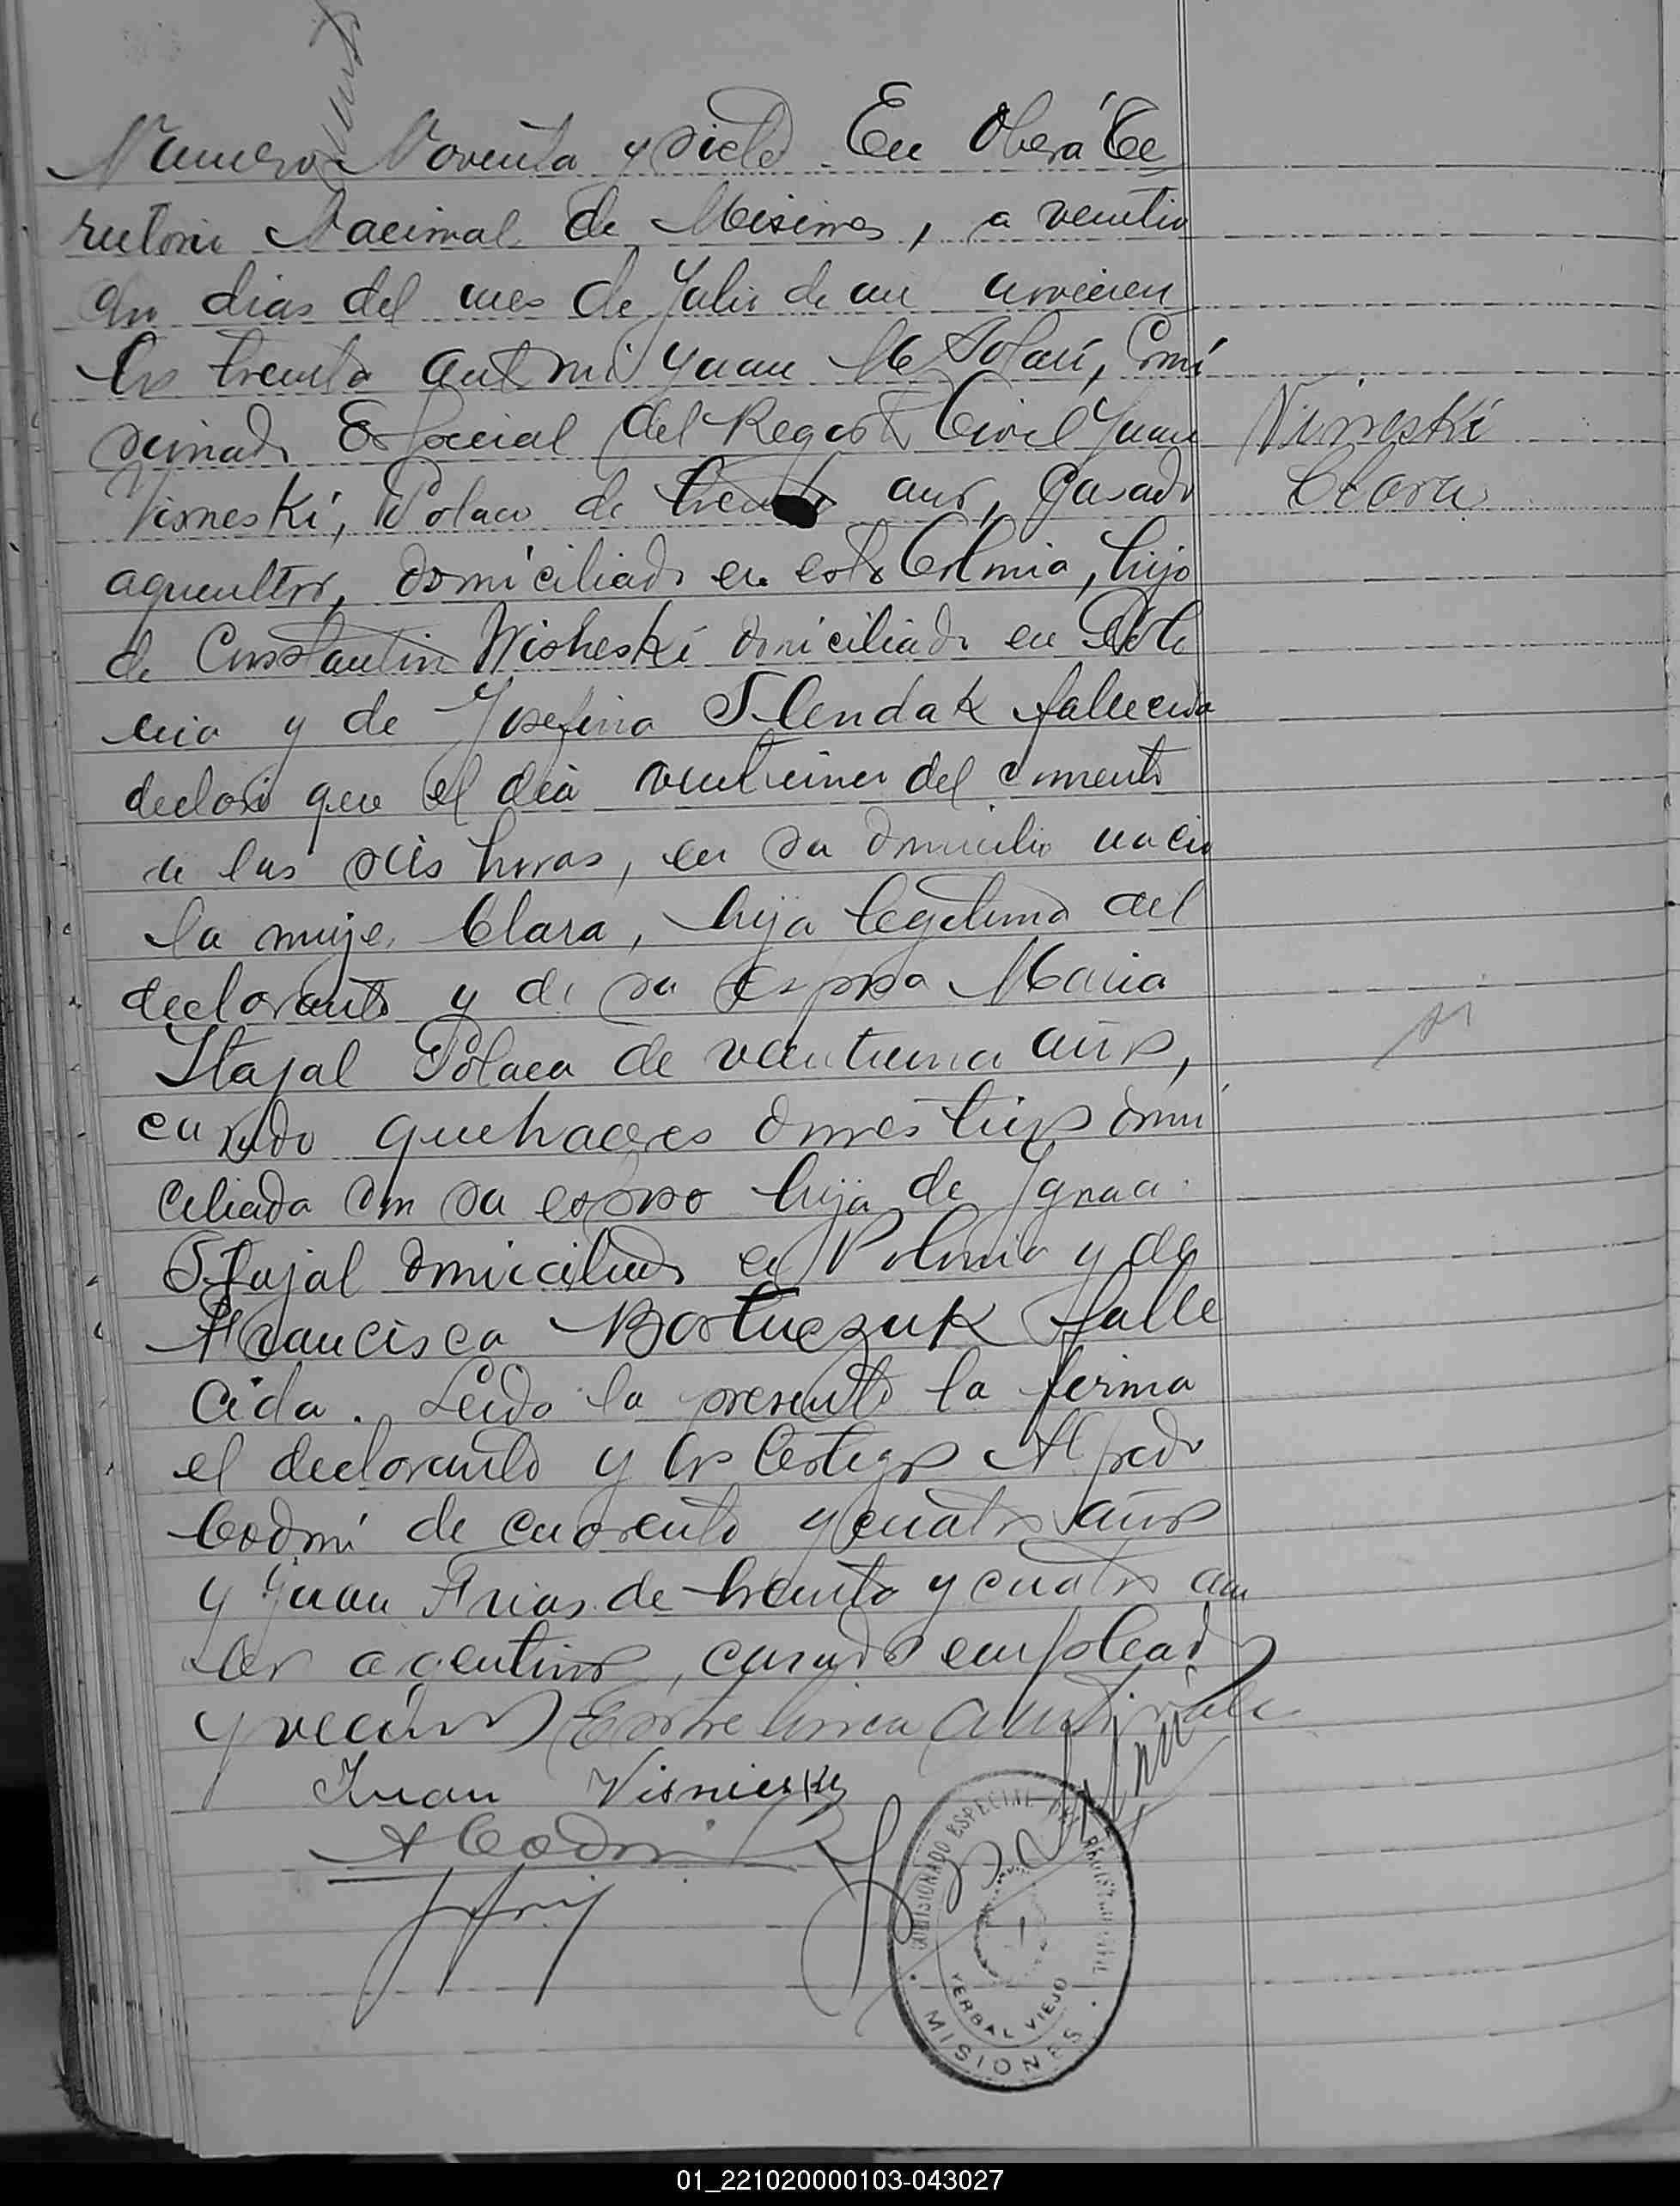 Numero Noventa y siete En Oberá Te
rritorio Nacional de Misiones, a veintio
cho dias del mes de Julio de mil novecien
tos treinta ante mi Juan M Solari, Comi
sionado Especial del Registro Civil Juan
Visneski, Polaco de treinta años, casado
agricultor, domiciliado en esta Colonia, hijo
de Constantin Wisneski domiciliado en Polo
nia y de Josefina Slendak fallecida
declaró que el dia veintiuno del corriente
a las seis horas, en su domicilio nacio
la mujer Clara, hija legitima del
declarante y de su esposa Maria
Stajal Polaca de veintiuno años,
casada quehaceres domesticos domi
ciliada con su esposo hija de Ignacio
Stajal domiciliado en Polonia y de
Francisca Bartuczuk falle
cida. Leida la presente la firma
el declarante y los testigos Alfredo
Codoni de cuarenta y cuatro años
y Juan Arias de treinta y cuatro am
bos argentinos, casados empleados
y vecinos Entre linea vale
Juan Visnieski
A Codoni
Visneski
Clara
COMISIONADO ESPECIAL DEL REGISTRO CIVIL
YERBAL VIEJO
MISIONES
01_221020000103-043027